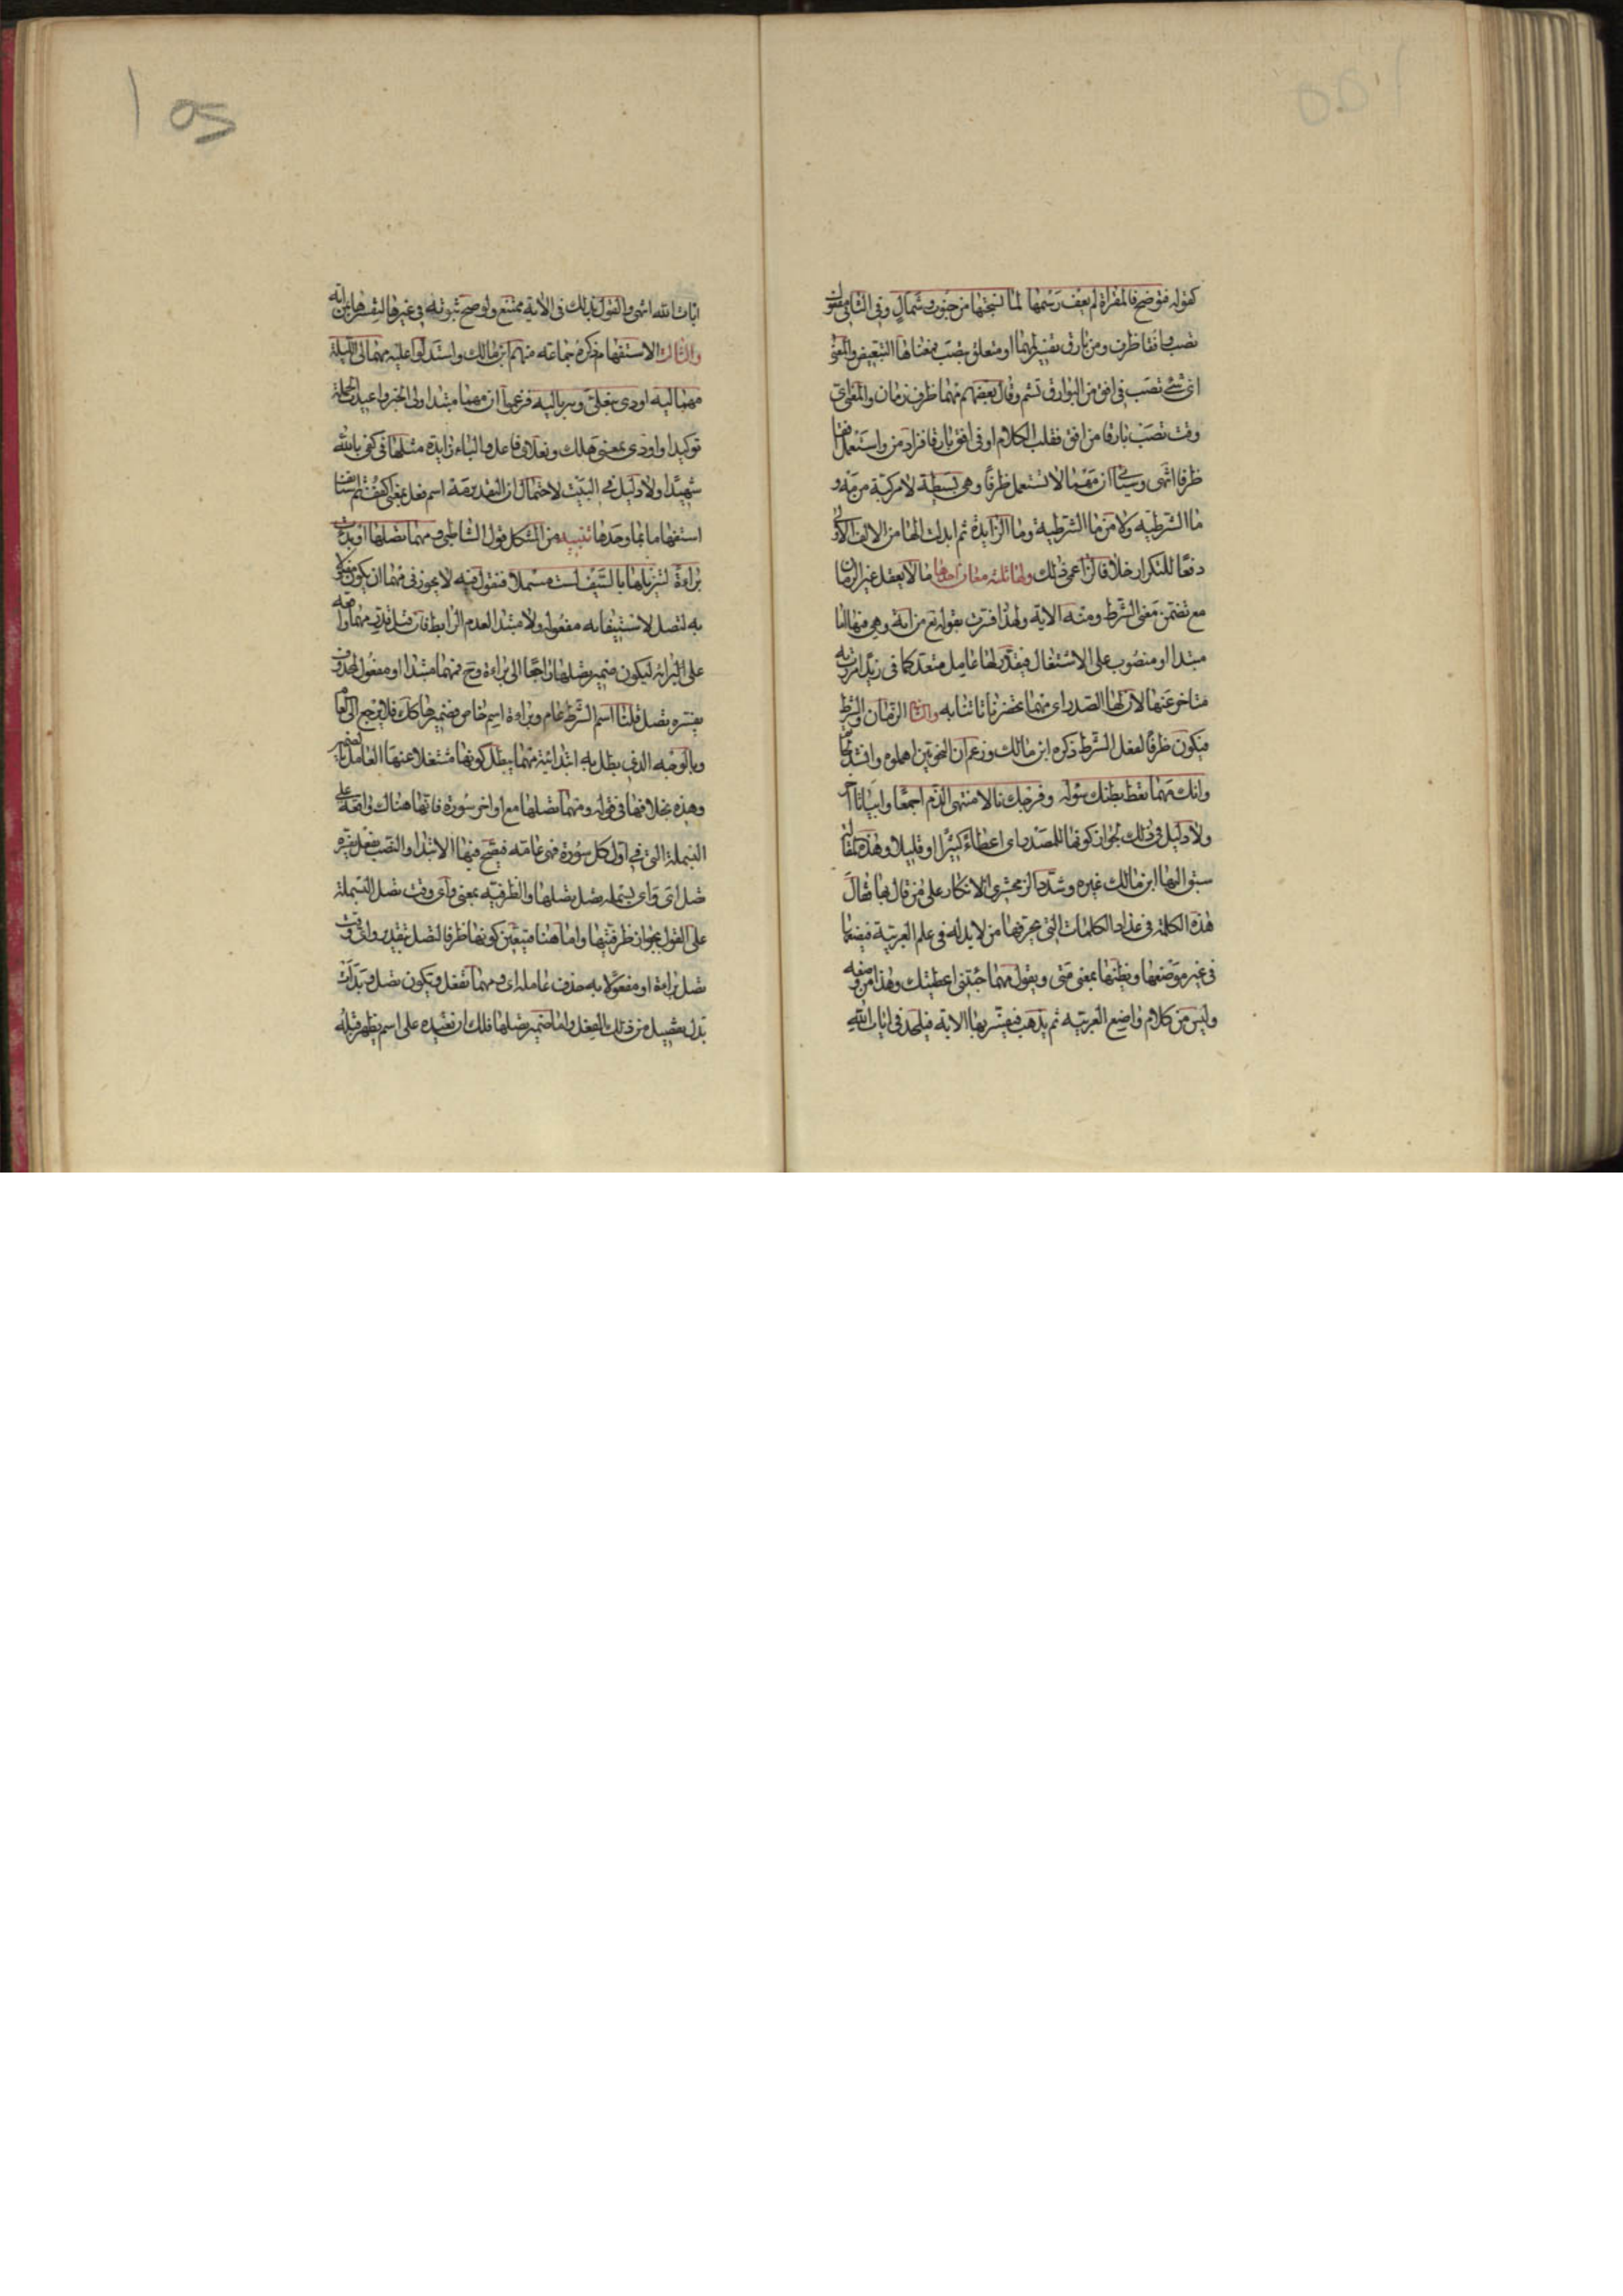 كقوله فتوضح فالمقراة لم يعف رسمها لما نسجتها من جنوب وشمال وفي الثاني مفعول
تصب وافقا ظرف ومن بارق تفسير لمهما او متعلق بتصب فمعناها التبعيض والمعنى
اي شئ تصب في افق من البوارق تشم وقال بعضهم مهما ظرف زمان والمعنى اي
وقت تصب بارقا من افق فقلب الكلام او في افق بارقا فزاد من واستعمل افقا
ظرفا انتهى وسياتي ان مهما لا تستعمل ظرفا وهي بسيطة لا مركبة من مه و
ما الشرطيه ولا من ما الشرطية وما الزايدة ثم ابدلت الها من الالف الاولى
دفعا للتكرار خلافا لزاعمي ذلك ولها ثلثه معان احدها ما لا يعقل غير الزمان
مع تضمن معنى الشرط ومنه الاية ولهذا فسرت بقوله تع من اية وهي فيها اما
مبتدا او منصوب على الاشتغال فيقدر لها عامل متعد كما في زيدا مررت به
متاخر عنها لان لها الصدر اي مهما تحضرنا تاتنا به والثاني الزمان والشرط
فتكون ظرفا لفعل الشرط ذكره ابن مالك وزعم ان النحويين اهملوه وانشد لحاتم
وانك مهما تعط بطنك سؤله وفرجك نالا منتهى الذم اجمعا وابياتا اخر
ولا دليل في ذلك لجواز كونها للمصدر بمعنى اي اعطاء كثيرا او قليلا وهذه المقالة
سبق اليها ابن مالك غيره وشدد الزمخشري الانكار على من قال بها فقال
هذه الكلمة في عداد الكلمات التي يحرفها من لا يد له في علم العربية فيضعها
في غير موضعها ويظنها بمعنى متى ويقول مهما جئتني اعطيتك وهذا من وضعه
وليس من كلام واضع العربيه ثم يذهب فيفسر بها الاية فيلحد في ايات الله
ايات الله انتهى والقول بذلك في الاية ممتنع ولو صح ثبوته في غيرها لتفسرها بمن اية
والثالث الاستفهام ذكره جماعة منهم ابن مالك واستدلوا عليه مهما لي الليلة
مهما ليه اودى بنعلي وسرباليه فزعموا ان مهما مبتدا ولي الخبر واعيدت الجملة
توكيدا واودى بمعنى هلك ونعلاي فاعل والباء زايدة مثلها في كفى بالله
شهيدا ولا دليل في البيت لاحتمال ان التقدير مه اسم فعل بمعنى اكفف ثم استانف
استفهاما بما وحدها تنبيه من المشكل قول الشاطبي ومهما تصلها او بدات
براءة لتنزيلها بالسيف لست مبسملا فنقول فيه لا يجوز في مهما ان يكون مفعولا
به لتصل لاستيفايه مفعوله ولا مبتدا لعدم الرابط فان قيل قدر مهما واقعه
على البراءة ليكون ضمير تصلها راجعا الى براءة وح فمهما مبتدا او مفعول لمحذوف
يفسره تصل قلنا اسم الشرط عام وبراءة اسم خاص فضميرها كذلك فلا يرجع الى العام
وبالوجه الذي بطل به ابتدائية مهما يبطل كونها مشتغلا عنها العامل بالضمير
وهذه بخلافها في قوله ومهما تصلها مع اواخر سورة فانها هناك واقعة على
البسملة التي في اول كل سورة فهي عامه فيصح فيها الابتدا والنصب بفعل يفسره
تصل اي واي بسملة تصل تصلها والظرفيه بمعنى واي وقت تصل البسملة
على القول بجواز ظرفيتها واما هنا فيتعين كونها ظرفا لتصل بتقدير واي وقت
تصل براءة او مفعولا به حذف عامله اي ومهما تفعل ويكون تصل وبدات
بدل تفصيل من ذلك الفعل واما ضمير تصلها فلك ان تعيده على اسم يظهر قبله